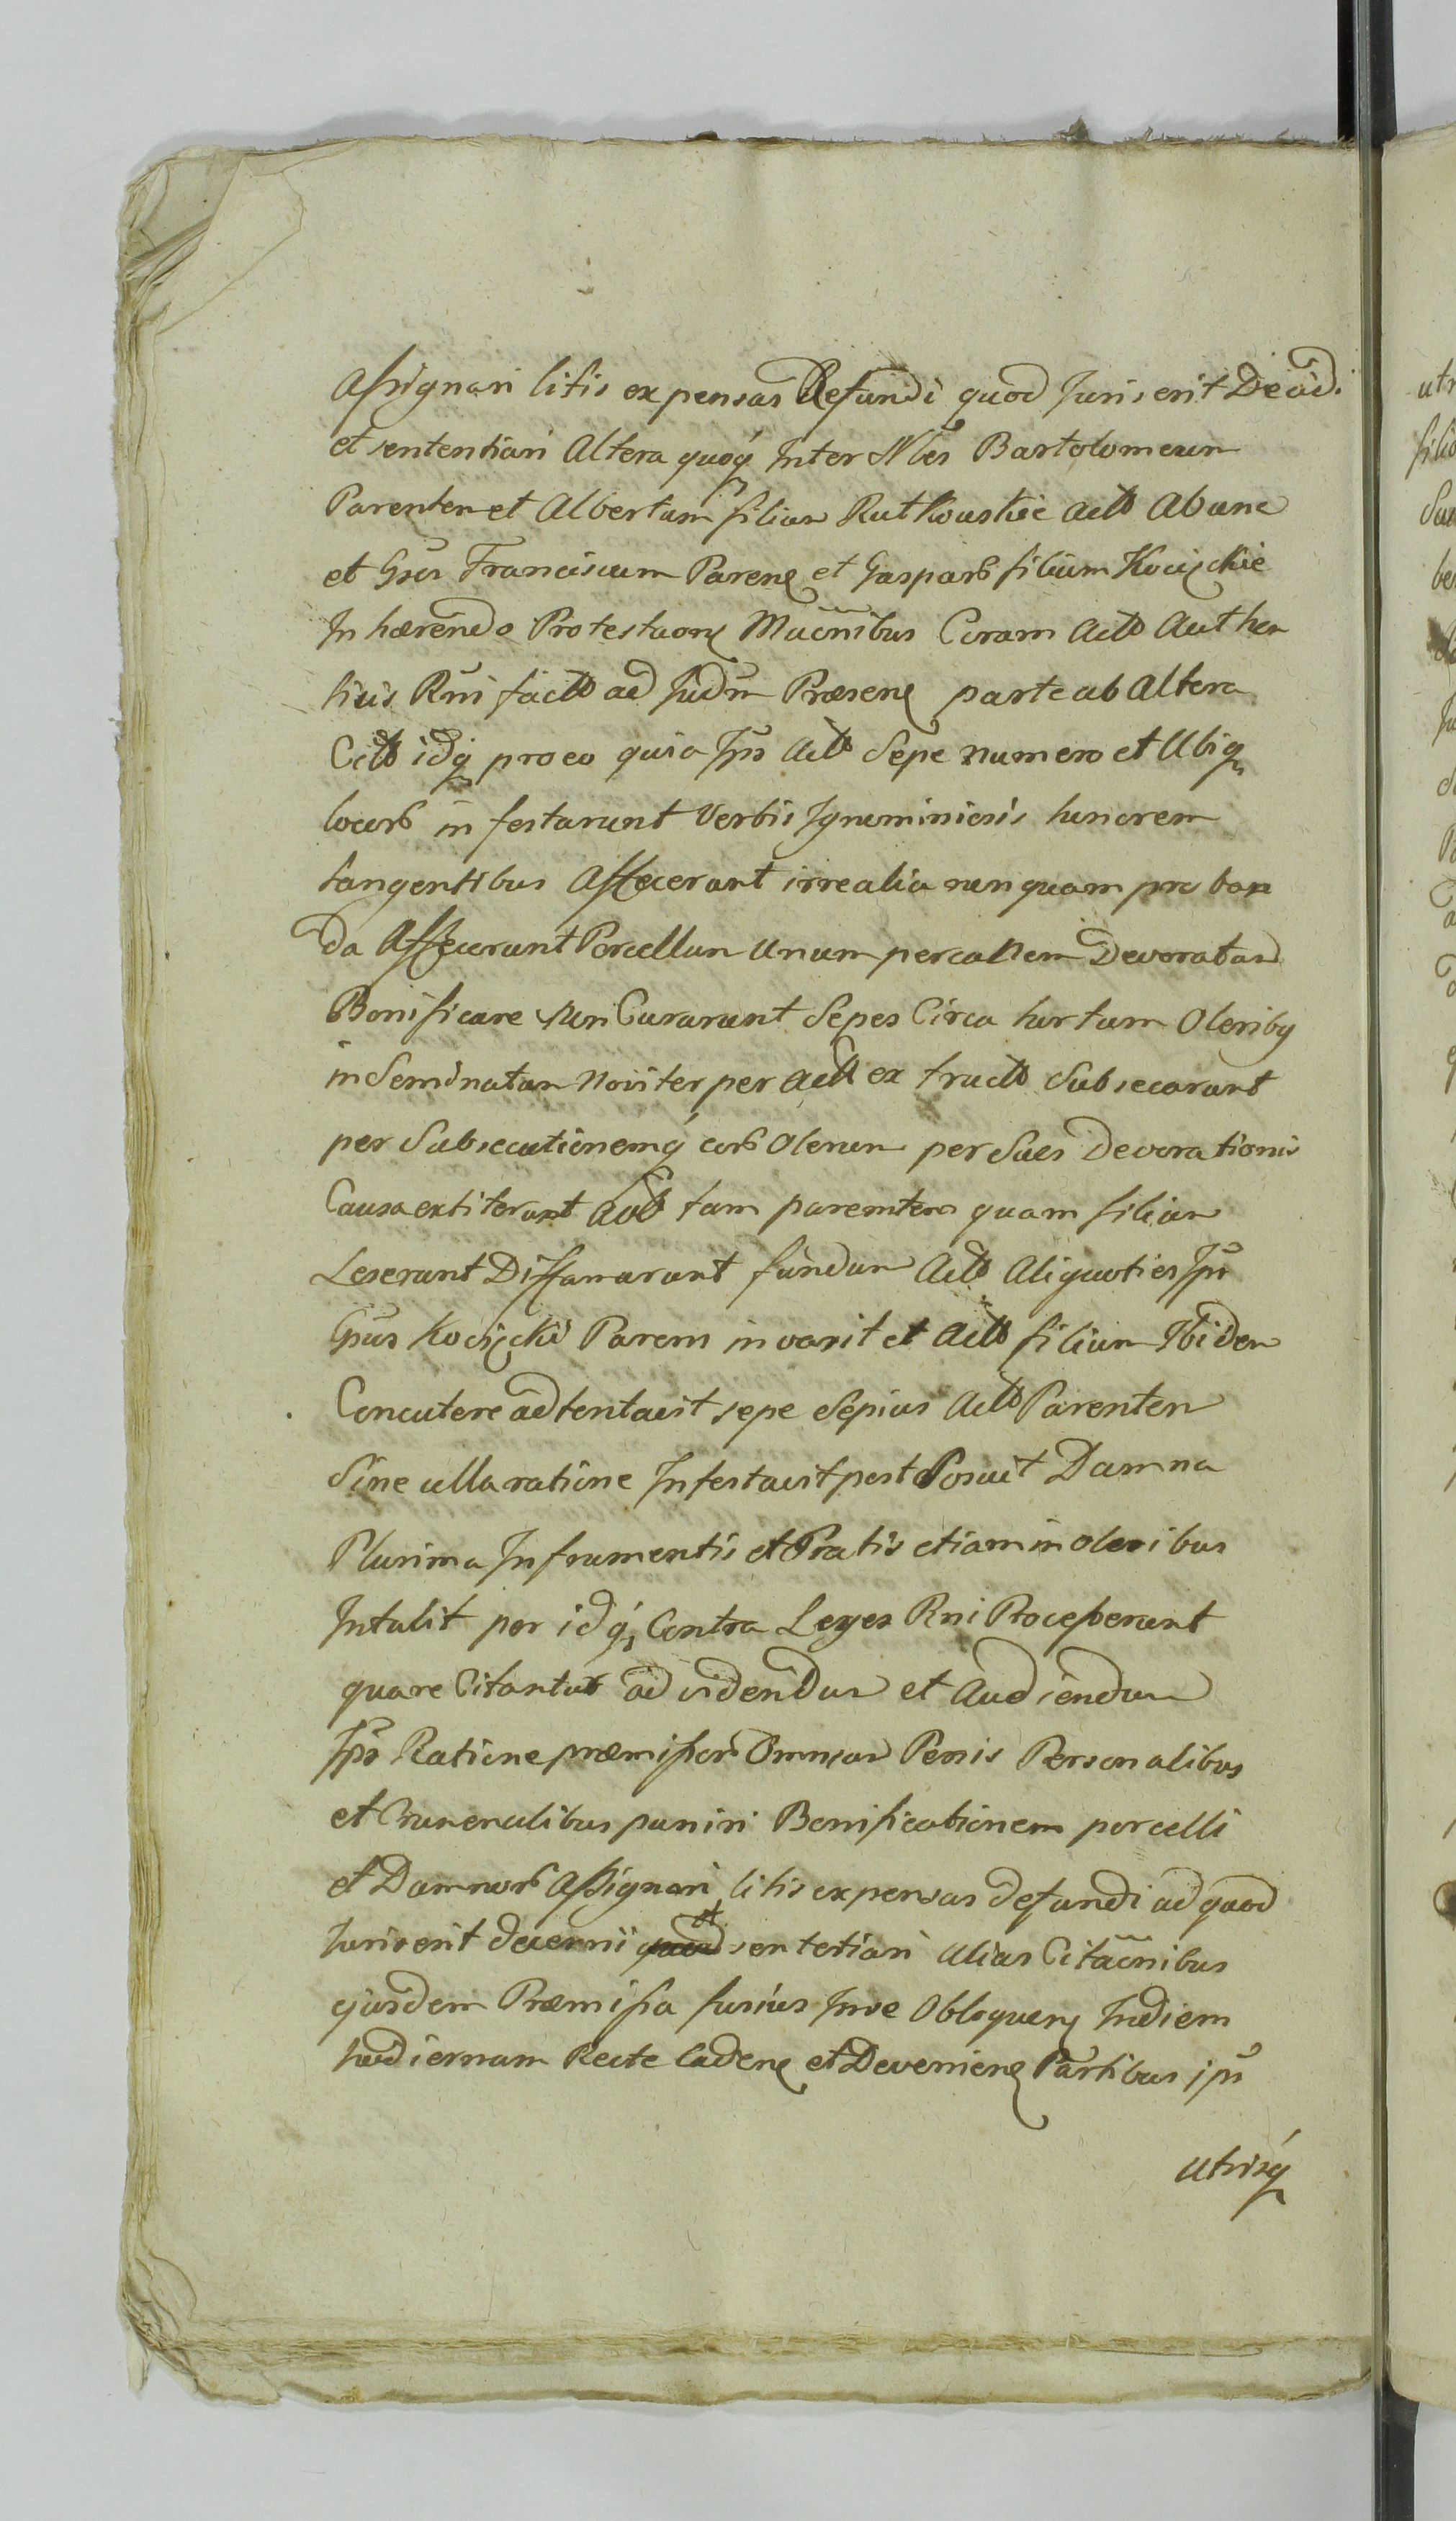 Assignari litis expensas Refundi quod Juris erit Decid.
et sententiari Altera quoq́ Inter Nles Bartolomeum
Parentem et Albertum filium Rutkowskie Actt Abunc
et Gsos Franciscum Paren̨ et Gasparū filium Kocięckie
In hærendo Protestaoni Maōnibus Coram Actt Authen
ticis Rn̄i factt ad Judm̄ Præsen̨ parte ab Altera
Citt idq̨ pro eo quia Ips̄i Actt Sepe numero et Ubiq̨
locorū in festarunt Verbis Ignominiosis honorem
tangentibus Affecerunt irrealia nunquam proban
da Affecerunt Porcellum Unum per canem Devoratum
Bonificare Non Curarunt Sepes Circa hortum Oleriby
in Seminatum Noviter per Actt ex tructt Subsecarunt
per Subsecutionemq́ eorū Olerum per Sues Devorationis
Causa extiterunt Actt tam parentem quam filium
Leserunt Diffamarunt fundum Actt Aliquoties Ips̄e
Gs̄us Kocięcki Parens invasit et Actt filium Ibidem
Concutere adtentavit sepe Sepius Actt Parentem
Sine ulla ratione Infestavit post Posuit Damna
Plurima In frumentis et Pratis etiam in oleribus
Intulit per idq́, Contra Leges Rni Processerunt
quare Citantur ad videndum et Audiendum
Ips̄os Ratione præmissorū Omnium Penis Personalibus
et Crumenalibus puniri Bonificationem porcelli
et Damnorū Assignari litis expensas defundi ad quod
Juris erit decerni et sentetiari Alias Citaōnibus
ejusdem Præmissa fusius In se Obloquen̨ In diem
hodiernam Recte Caden̨ et Devenien̨ Partibus ips̄
utrisq́